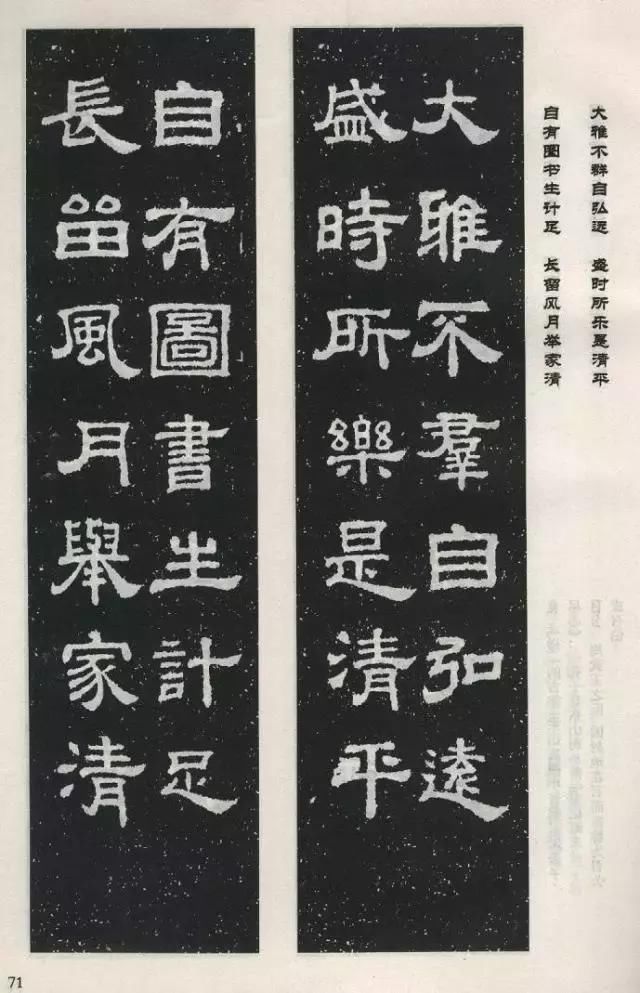 大雅不群自弘远　盛时所乐是清平
自有图书生计足　长留风月举家清
大雅不羣自弘遠
盛時所樂是清平
自有圖書生計足
長留風月舉家清
71